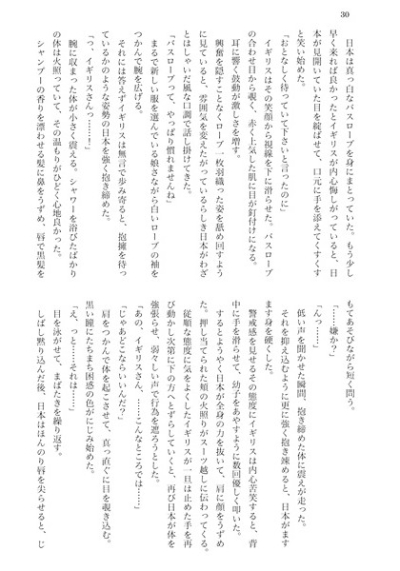 30
日本は真っ白なバスローブを身にまとっていた。もう少し
早く来れば良かったとイギリスが内心悔しがっていると、日
本が見開いていた目を綻ばせて、口元に手を添えてくすくす
と笑い始めた。
「おとなしく待っていて下さいと言ったのに」
イギリスはその笑顔から視線を下に滑らせた。バスローブ
の合わせ目から覗く、赤く上気した肌に目が釘付けになる。
耳に響く鼓動が激しさを増す。
興奮を隠すことなくローブ一枚羽織った姿を舐め回すよう
に見ていると、雰囲気を変えたがっているらしき日本がわざ
とはしゃいだ風な口調で話し掛けてきた。
「バスローブって、やっぱり慣れませんね」
まるで新しい服を選んでいる娘さながら白いローブの袖を
つかんで腕を広げる。
それには答えずイギリスは無言で歩み寄ると、抱擁を待っ
ているかのような姿勢の日本を強く抱き締めた。
「っ、イギリスさんっ……！」
腕に収まった体が小さく震える。シャワーを浴びたばかり
の体は火照っていて、その温もりがひどく心地良かった。
シャンプーの香りを漂わせる髪に鼻をうずめ、唇で黒髪を
もてあそびながら短く問う。
「……嫌か？」
「んっ……」
低い声を聞かせた瞬間、抱き締めた体に震えが走った。
それを抑え込むように更に強く抱き竦めると、日本がます
ます身を硬くした。
警戒感を見せるその態度にイギリスは内心苦笑すると、背
中に手を滑らせて、幼子をあやすように数回優しく叩いた。
するとようやく日本が全身の力を抜いて、肩に顔をうずめ
た。押し当てられた頬の火照りがスーツ越しに伝わってくる。
従順な態度に気をよくしたイギリスが一旦は止めた手を再
び動かし次第に下の方へとずらしていくと、再び日本が体を
強張らせ、弱々しい声で行為を遮ろうとした。
「あの、イギリスさん、……こんなところでは……」
「じゃあどこならいいんだ？」
肩をつかんで体を起こさせて、真っ直ぐに目を覗き込む。
黒い瞳にたちまち困惑の色がにじみ始めた。
「え、っと……それは……」
目を泳がせて、まばたきを繰り返す。
しばし黙り込んだ後、日本はほんのり唇を尖らせると、じ